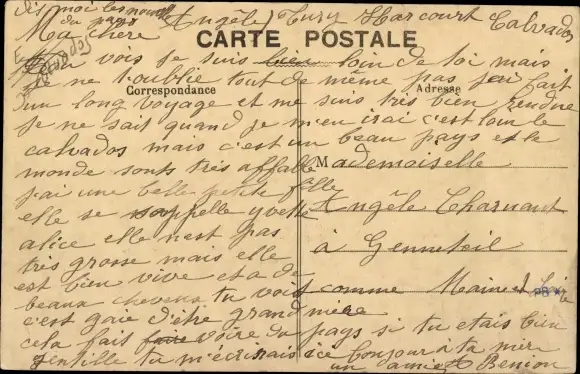 dis moi les nouvelles
du pays
Thury Harcourt Calvados
Ma chère Angèle
CARTE POSTALE
Calvados
Tu vois Je suis bien loin de toi mais
Je ne t'oublie tout de même pas j'ai fait
Correspondance
Adresse
un long voyage et me suis très bien rendue
Je ne sait quand je m'en irai c'est loin le
calvados mais c'est un beau pays et le
monde sonts très affable
j'ai une belle petite fille
elle se rappelle yvette
alice elle n'est pas
très grosse mais elle
est bien vive et a de
beaux cheveux tu vois comme
c'est gaie d'être grand mère
cela fait faire voire du pays si tu etais bien
gentille tu m'écrirais ici bonjour à ta mère
un Benion
Mademoiselle
Angèle Charuau
à Genneteil
Maine et Loire